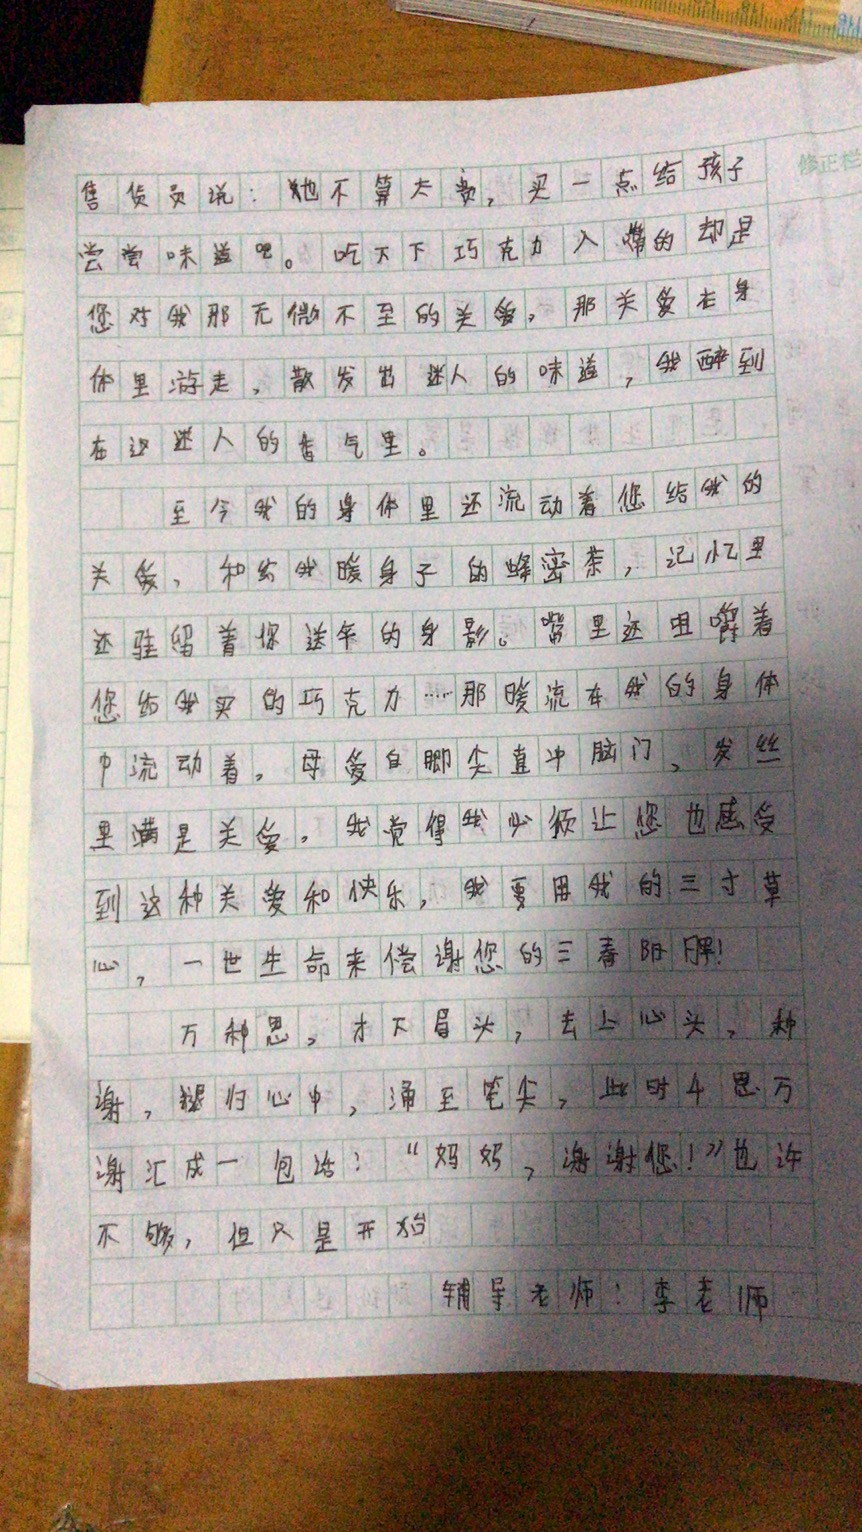 修正栏
售货员说：她不算太贵，买一点给孩子
尝尝味道吧。吃下下巧克力入嘴的却是
您对我那无微不至的关爱，那关爱在身
体里游走，散发出迷人的味道，我醉到
在这迷人的香气里。
至今我的身体里还流动着您给我的
关爱，和给我暖身子的蜂蜜茶，记忆里
还驻留着你送伞的身影。嘴里还咀嚼着
您给我买的巧克力……那暖流在我的身体
中流动着，母爱自脚尖直冲脑门，发丝
里满是关爱。我觉得我必须让您也感受
到这种关爱和快乐，我要用我的三寸草
心，一世生命来偿谢您的三春阳晖！
万种思，才下眉头，去上心头，种
谢，归心中，涌至笔尖，此时千思万
谢汇成一句话：“妈妈，谢谢您！”也许
不够，但只是开始
辅导老师：李老师